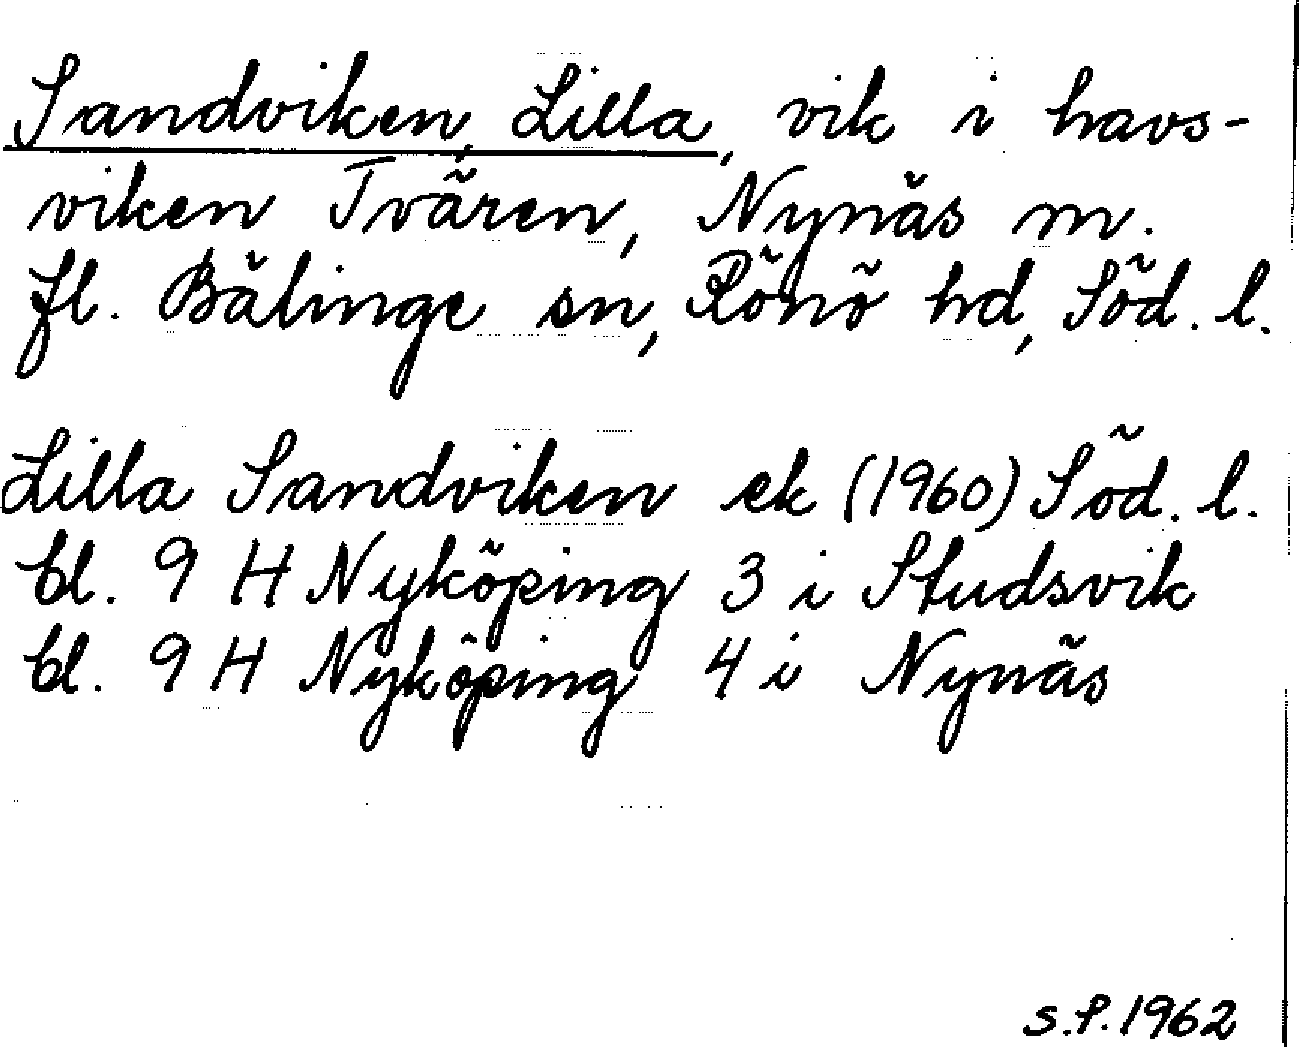 Sandviken, Lilla, vik i havs-
viken Tvären, Nynäs m.
fl. Bälinge sn, Rönö hd, Söd. l.
Lilla Sandviken ek (1960) Söd. l.
bl. 9 H Nyköping 3 i Studsvik
bl. 9 H Nyköping 4 i Nynäs
S.P. 1962